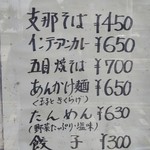 支那そば ¥450
インデアンカレー ¥650
五目焼そば ¥700
あんかけ麺 ¥650
(きくらげ)
たんめん ¥630
(野菜たっぷり・塩味)
餃子 ¥300